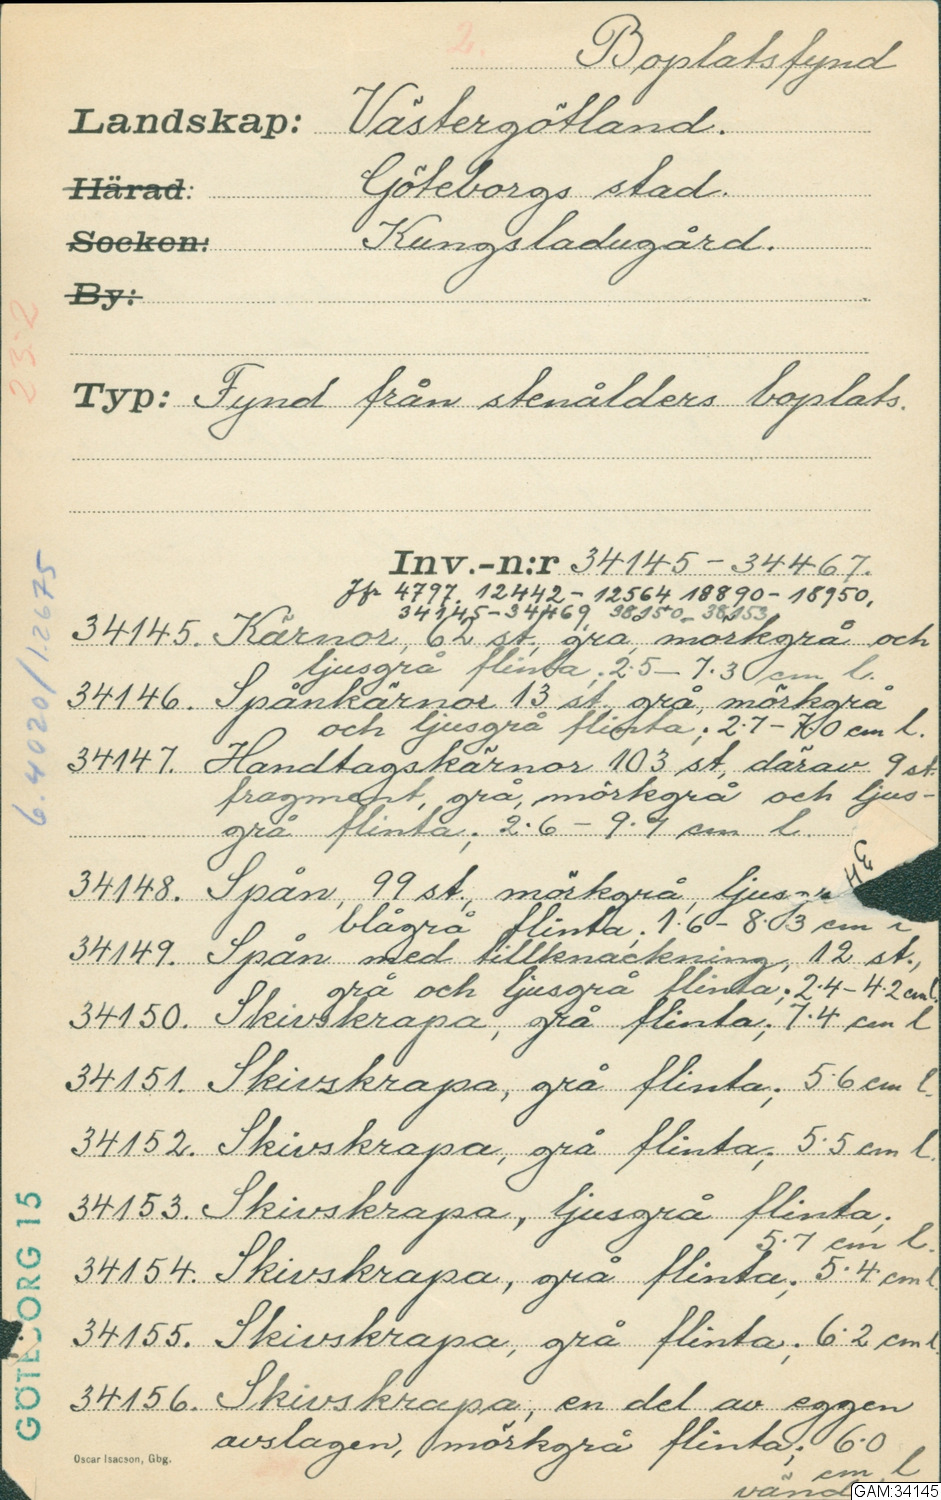 2.
Boplatsfynd
Landskap: Västergötland.
Härad: Göteborgs stad.
Socken: Kungsladugård.
By:
Typ: Fynd från stenålders boplats.
Inv.-n:r 34145-34467.
Jfr 4797. 12442-12564 18890-18950,
34145-34469, 38150-38153
34145. Kärnor, 62 st, grå, mörkgrå och
ljusgrå flinta; 2.5-7.3 cm l.
34146. Spånkärnor 13 st. grå, mörkgrå
och ljusgrå flinta; 2.7-7.0 cm l.
34147. Handtagskärnor 103 st, därav 9 st.
fragment, grå, mörkgrå och ljus-
grå flinta; 2.6-9.7 cm l.
34148. Spån, 99 st., mörkgrå,
blågrå flinta; 1.6-8.3 cm
34149. Spån med tillknackning, 12 st.,
grå och ljusgrå flinta; 2.4-4.2 cm l.
34150. Skivskrapa, grå flinta; 7.4 cm l
34151. Skivskrapa, grå flinta; 5.6 cm l.
34152. Skivskrapa, grå flinta; 5.5 cm l.
34153. Skivskrapa, ljusgrå flinta;
5.7 cm l.
34154. Skivskrapa, grå flinta; 5.4 cm l.
34155. Skivskrapa, grå flinta; 6.2 cm l.
34156. Skivskrapa, en del av eggen
avslagen, mörkgrå flinta; 6.0
cm l
Oscar Isacson, Gbg.
GAM:34145
23.2
6.4020/1.2675
GÖTEBORG 15